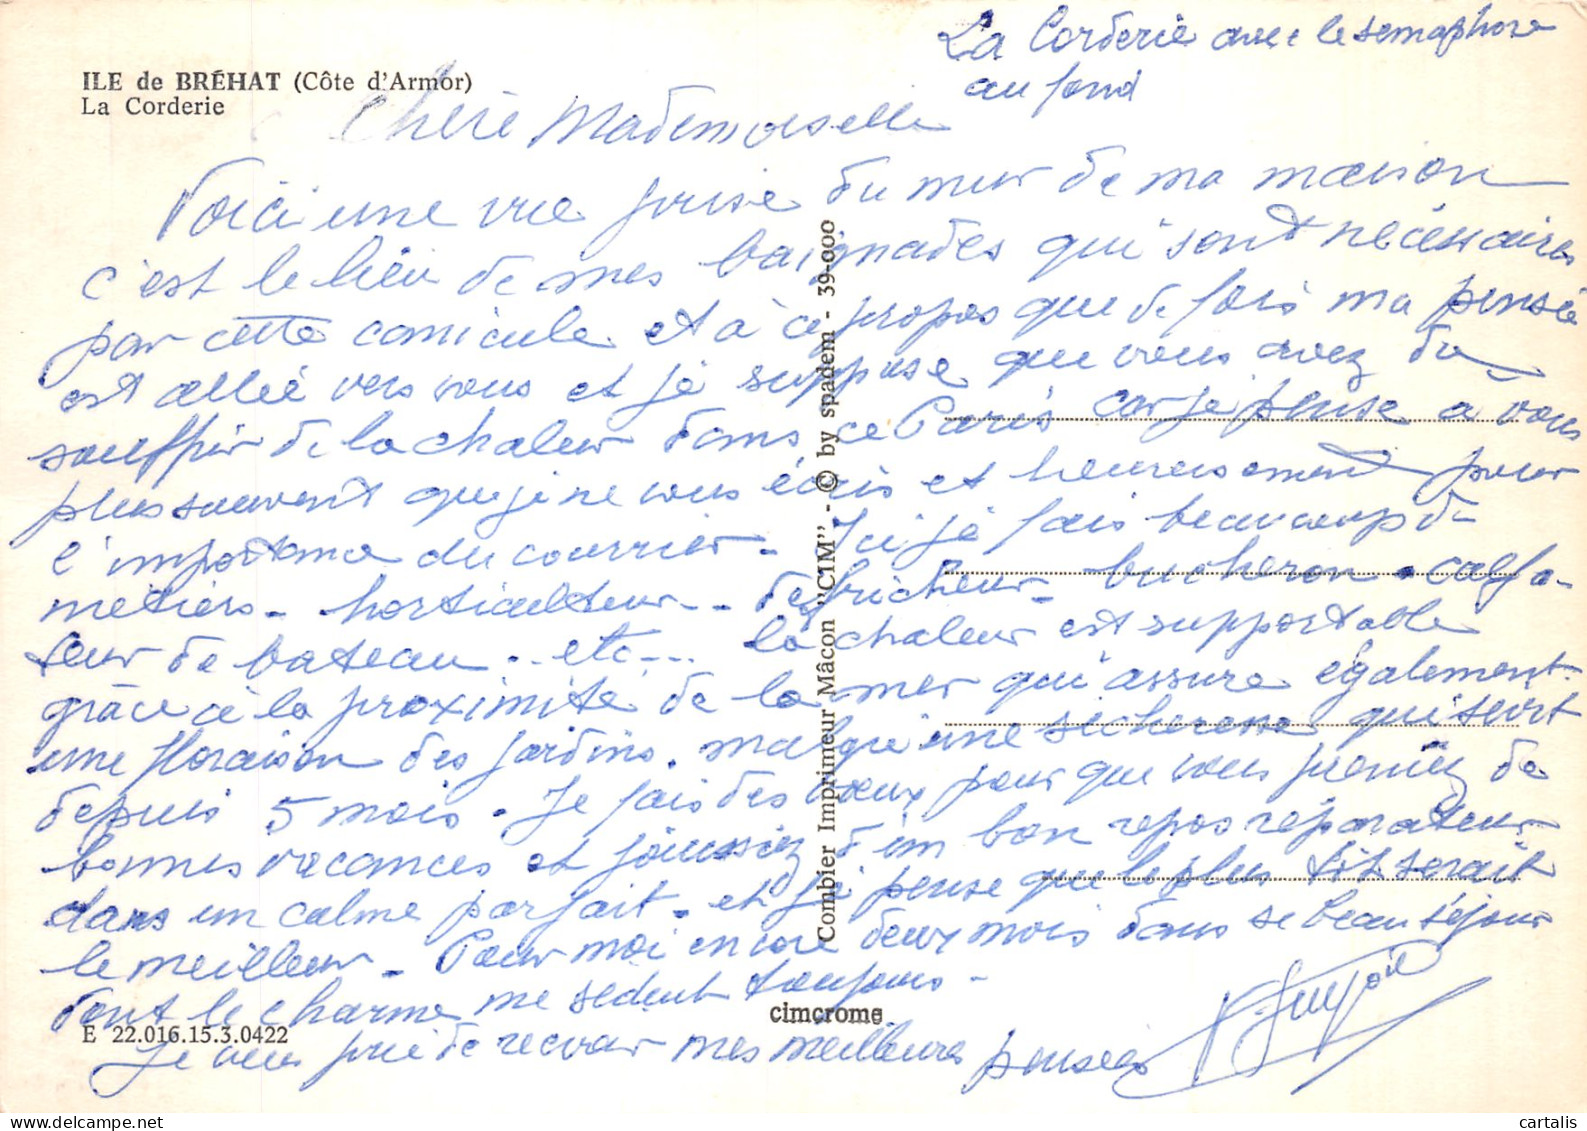 La Corderie avec le semaphore
au fond
ILE de BRÉHAT (Côte d'Armor)
La Corderie
Chère Mademoiselle
Voici une vue prise du mur de ma maison
c'est le lieu de mes baignades qui sont nécessaires
par cette canicule et à ce propos que de fois ma pensée
est allée vers vous et je suppose que vous avez du
souffrir de la chaleur dans ce Paris car je pense à vous
plus souvent que je ne vous écris et heureusement pour
l'importance du courrier - Ici je fais beaucoup de
métiers - horticulteur - défricheur - bucheron - calfa-
teur de bateau - etc... la chaleur est supportable
grâce à la proximité de la mer qui assure également
une floraison des jardins. malgré une sécheresse qui sévit
depuis 5 mois. Je fais des vœux pour que vous preniez de
bonnes vacances et jouissiez d'un bon repos réparateur
dans un calme parfait - et je pense que le plus tôt serait
le meilleur - Pour moi encore deux mois dans se beau séjour
dont le charme me séduit toujours -
Je vous prie de recevoir mes meilleures pensées
cimcrome
E 22.016.15.3.0422
Combier Imprimeur Mâcon "CIM" - © by spadem - 39-000
cartalis